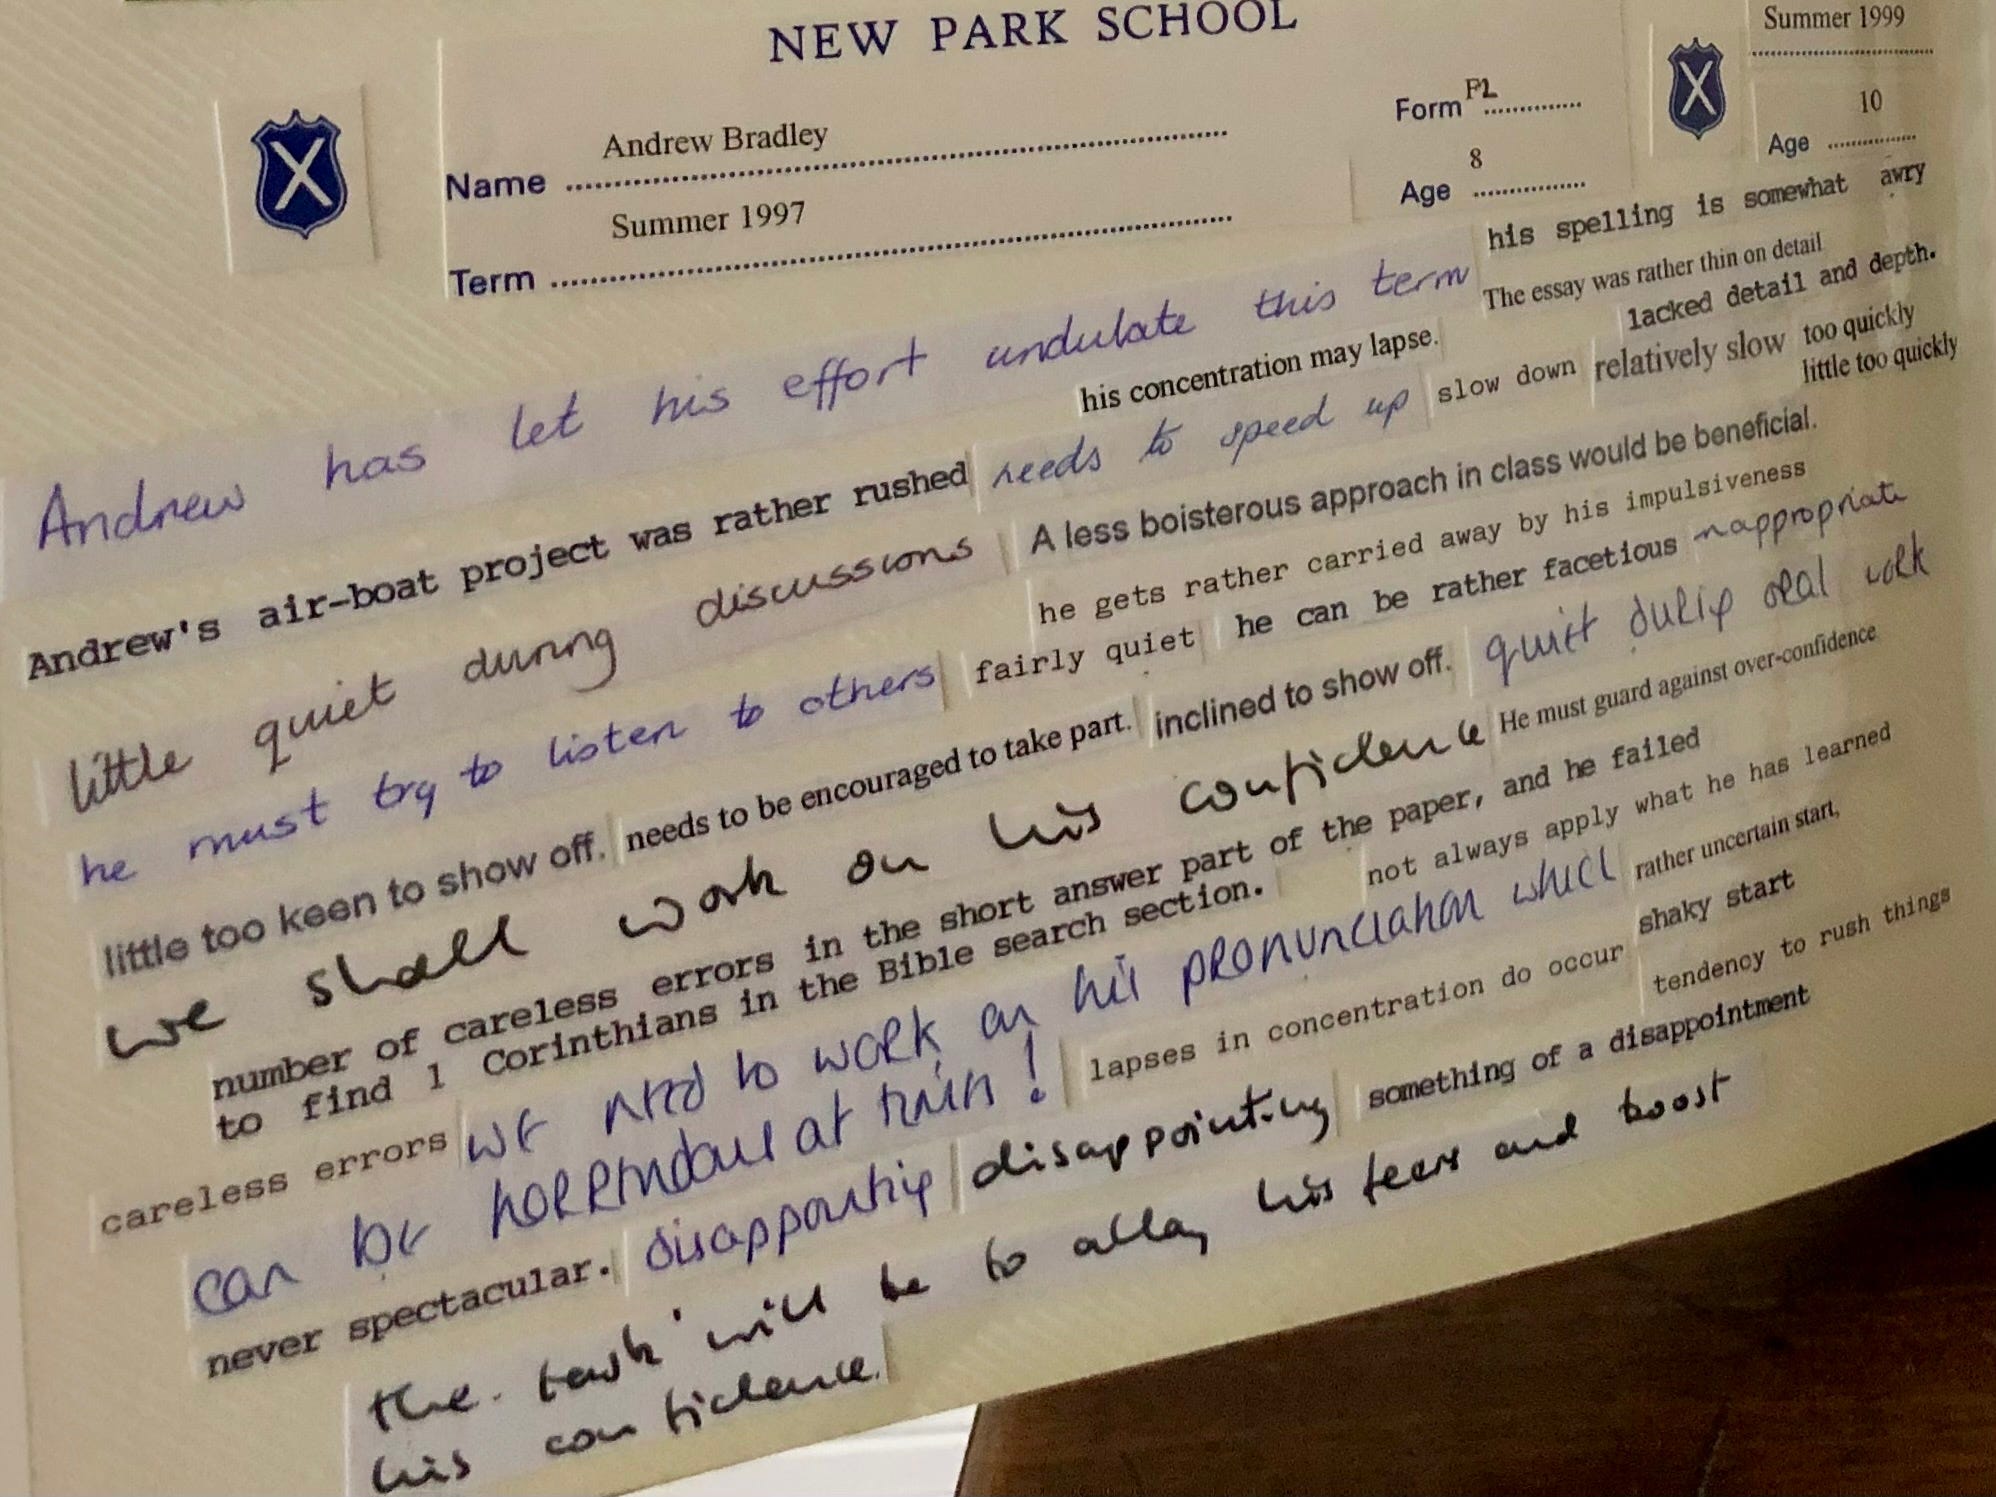 NEW PARK SCHOOL
Summer 1999
Form
Age 10
Name Andrew Bradley
Age 8
Term Summer 1997
his spelling is somewhat awry
The essay was rather thin on detail
lacked detail and depth.
Andrew has let his effort undulate this term
his concentration may lapse.
too quickly
little too quickly
Andrew's air-boat project was rather rushed needs to speed up slow down relatively slow
A less boisterous approach in class would be beneficial.
little quiet during discussions
he gets rather carried away by his impulsiveness
he must try to listen to others fairly quiet he can be rather facetious inappropriate
little too keen to show off. needs to be encouraged to take part. inclined to show off. quiet during oral work
we shall work on his confidence He must guard against over-confidence
number of careless errors in the short answer part of the paper, and he failed
to find 1 Corinthians in the Bible search section.
not always apply what he has learned
careless errors we need to work on his pronunciation which rather uncertain start,
can be horrendous at times! lapses in concentration do occur shaky start
tendency to rush things
never spectacular. disappointing disappointing something of a disappointment
the task will be to allay his fears and boost
his confidence.